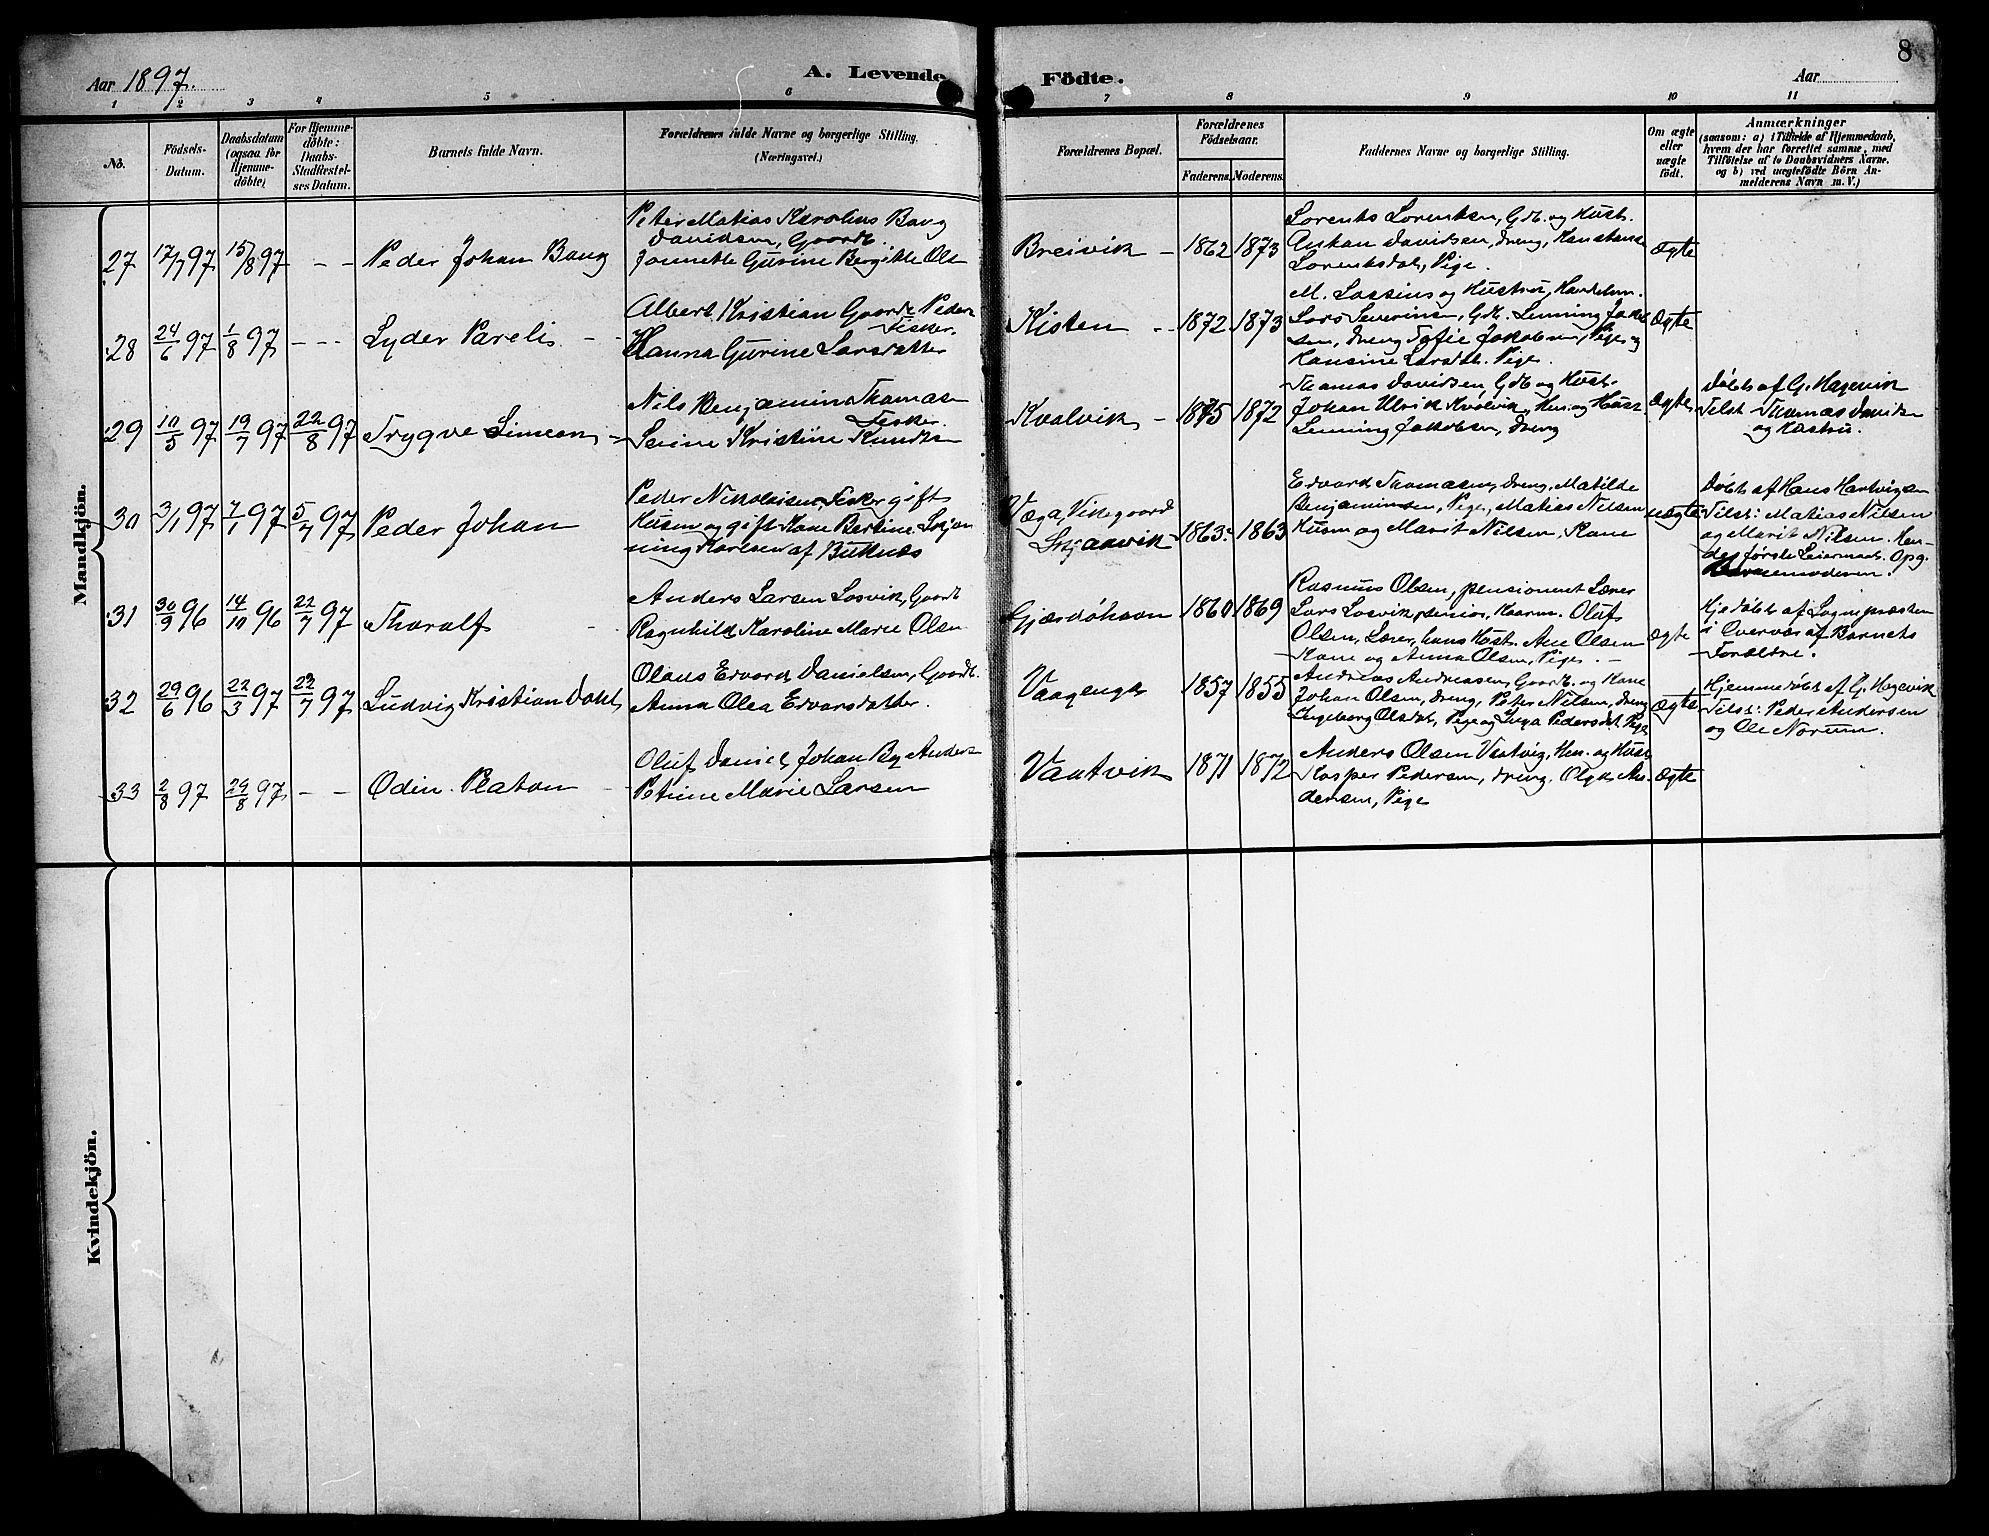 Aar 1897.
A. Levende
Födte.
Aar
8
1 2 3 4 5 6 7 8 9 10 11
No.
Födsels-
Datum.
Daabsdatum
(ogsaa for
Hjemme-
döbte)
For Hjemme-
döbte:
Daabs-
Stadfestel-
ses Datum.
Barnets fulde Navn.
Forældrenes fulde Navne og borgerlige Stilling.
(Næringsvei.)
Forældrenes Bopæl.
Forældrenes
Födselsaar.
Faderens.
Moderens.
Faddernes Navne og borgerlige Stilling.
Om ægte
eller
uægte
födt.
Anmærkninger
(saasom: a) i Tilfælde af Hjemmedaab,
hvem der har forrettet samme, med
Tilföielse af to Daabsvidners Navne.
og b) ved uægtefödte Börn An-
melderens Navn m. V.)
Mandkjön.
27 17/7 97 15/8 97 - - Peder Johan Bang
Peter Matias Karolius Bang
Davidsen, Gaardb.
Jannette Gurine Bergitte Ols
Breivik - 1862 1873
Lorents Lorentsen, Gdb. og Hust.
Antan Davidsen, dreng, Konstanse
Lorentsdat, Pige.
ægte
28 24/6 97 1/8 97 - - - Lyder Parelis
Albert Kristian Goarde Peder
Fisker.
Hanna Gurine Larsdatter
Kisten - 1872 1873
M. Lossius og Hustru, Handelsm.
Lars Severins, Gdb. Lenning Jakob
sen, dreng Tofie Jakobsen, Pige og
Hansine Larsdtt. Pige.
ægte
29 10/5 97 19/7 97 22/8 97 Trygve Simeon
Nils Benjamin Thomas
Fisker.
Seine Kristine Knudts
Kvalvik - 1875 1872
Thomas Davidsen, Gdb og Hust.
Johan Ulrik Kvalvik, Hm. og Hust
Lenning Jakobsen, dreng
ægte
Döbt af G. Hagevik
Tilst. Thomas Davidsen
og Hustru.
30 3/1 97 7/1 97 5/7 97 Peder Johan
Peder Nikolaisen, Fisker gift
Husm og gift Kone Bertine
ning Karlsen af Buknæs
Væga, Vikegaard
1863. 1863
Edvard Thomasen, dreng, Matilde
Benjaminsen, Pige, Matias Nilsen
Husm og Marit Nilsen, Kone
uægte
Döbt af Hans Hartvigsen
Tilst: Matias Nilsen
og Marit Nilsen. Hen-
des förste Leiermaal. Opg.
Barnemoderen.
31 30/9 96 14/10 96 22/7 97 Tharalf
Anders Larsen Losvik, Gaardb
Ragnhild Karoline Marie Olsen
Gjærdöhavn 1860 1869
Rasmus Olsen, pensioneret Lærer
Lars Losvik, senior, Kaarm. Oluf
Olsen, Lærer, hans Hust. Ane Olsen
Kone og Anna Olsen, Pige. -
ægte
Hjedöbt af Sognepræsten
i Overvær af Barnets
Forældre.
32 29/6 96 22/3 97 22/7 97 Ludvig Kristian Dahl
Olaus Edvard Danielsen, Gaardb.
Anna Olea Edvarsdatter
Vaagenga 1857 1855
Andreas Andreasen, Gaardb. og Kone
Johan Olsen, dreng, Peter Nilsen, dreng
Ingeborg Olsdat, Pige og Inga Pedersdat. Pige
ægte
Hjemmedöbt af G. Hagevik
Tilst: Peder Andersen
og Ole Norum.
33 2/8 97 29/8 97 - - Odin Platon
Oluf Daniel Johan By Anders
Petrine Marie Larsen
Vaatvik 1871 1872
Anders Olsen Vaatvig, Hm. og Hust
Kasper Pedersen, dreng. Olga An-
dersen, Pige
ægte
Kvindekjön.